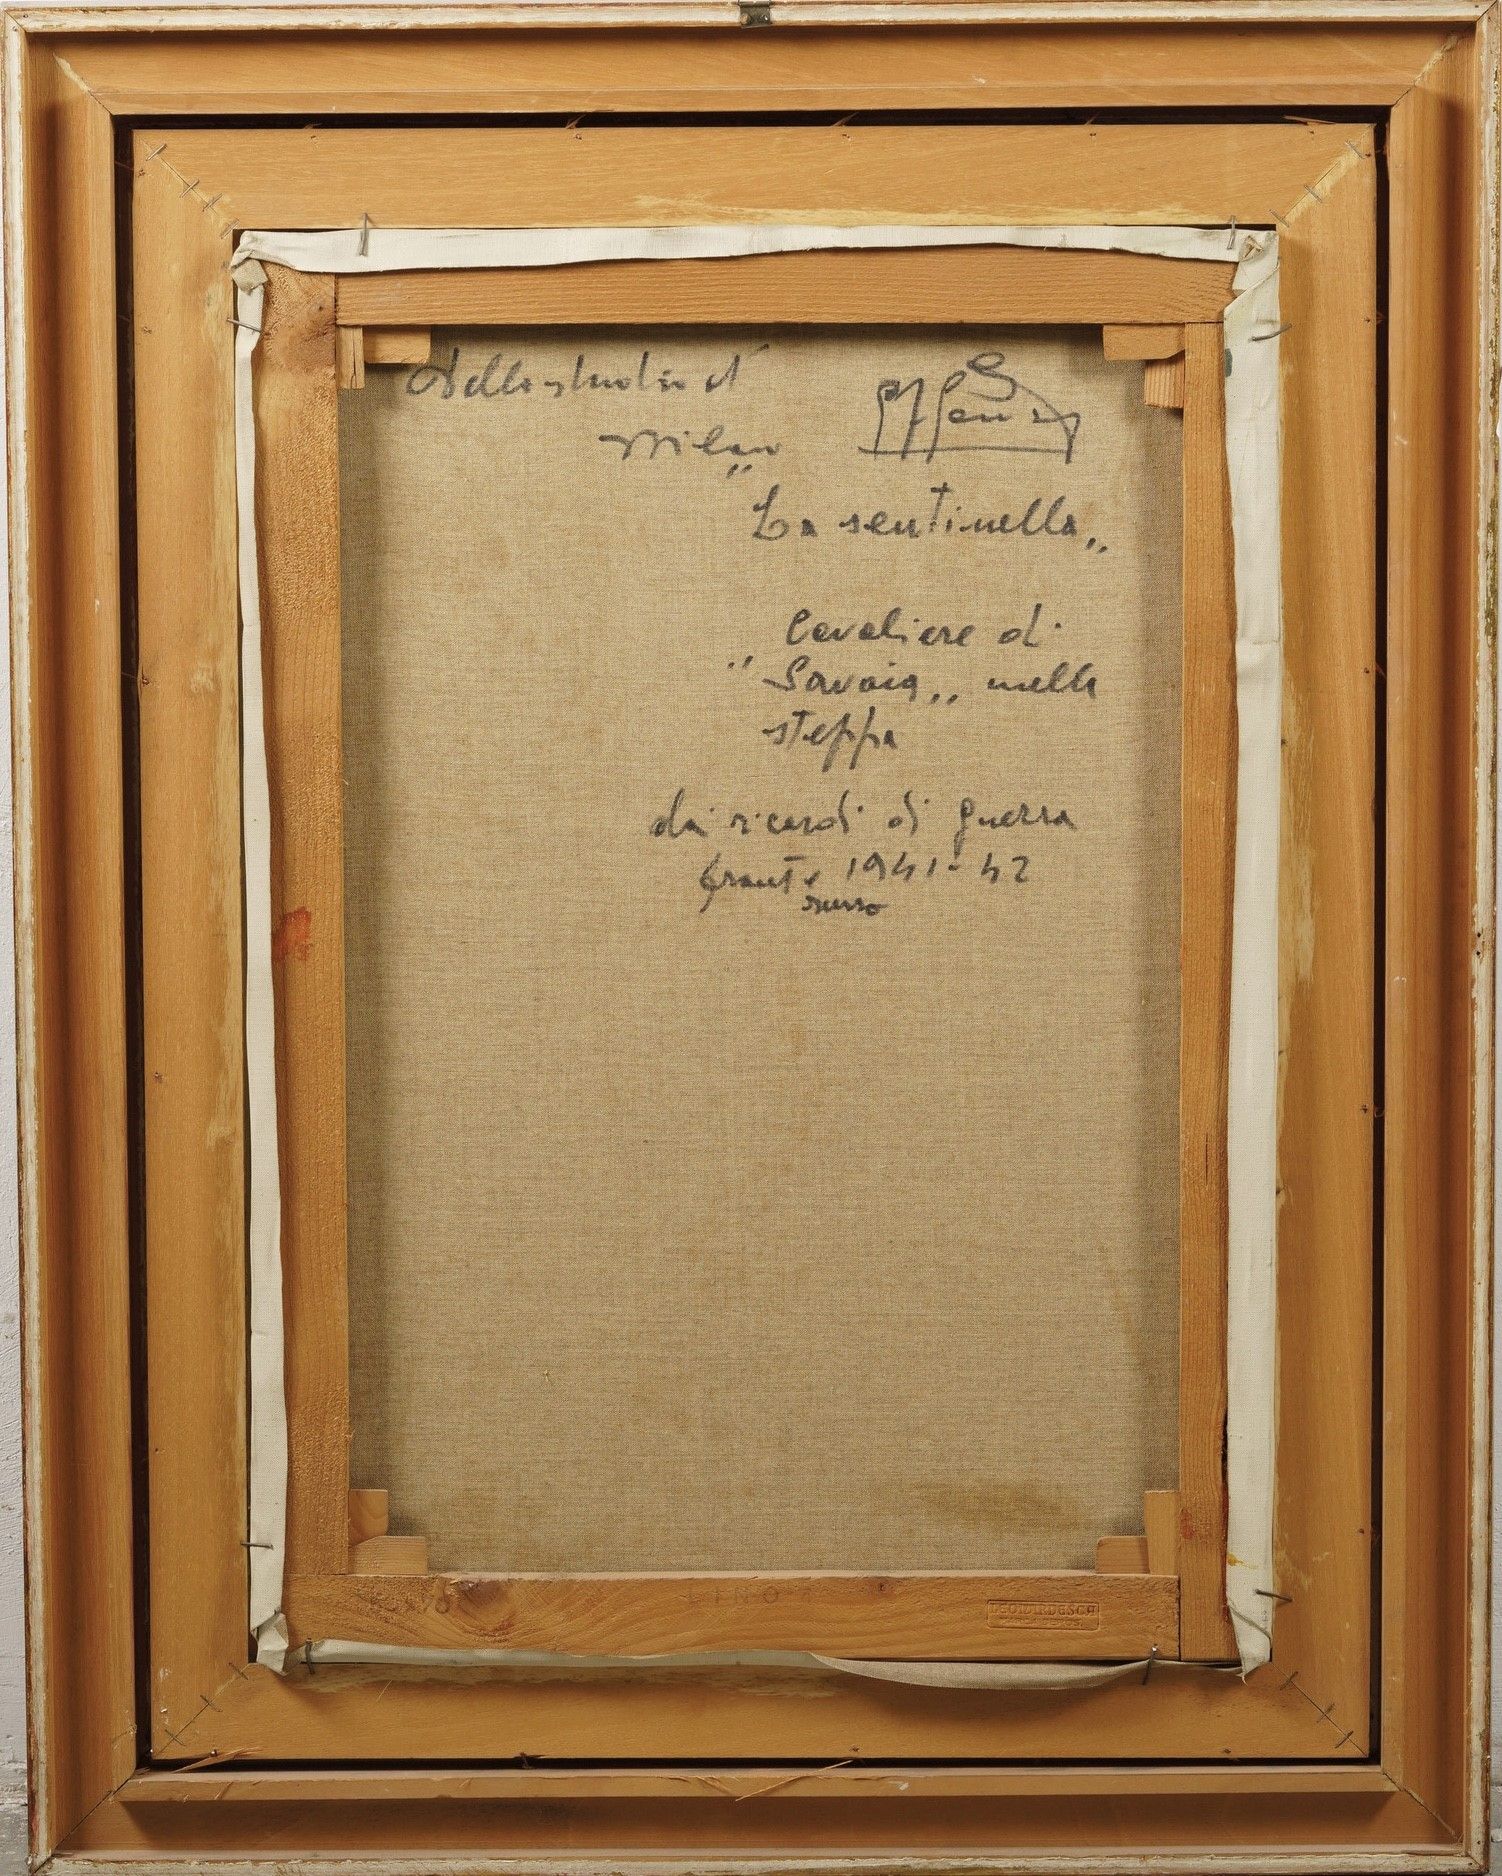 dello studio di
Milano
"La sentinella„
Cavaliere di
"Savoia„ nella
steppa
dai ricordi di guerra
fronte 1941-42
russo